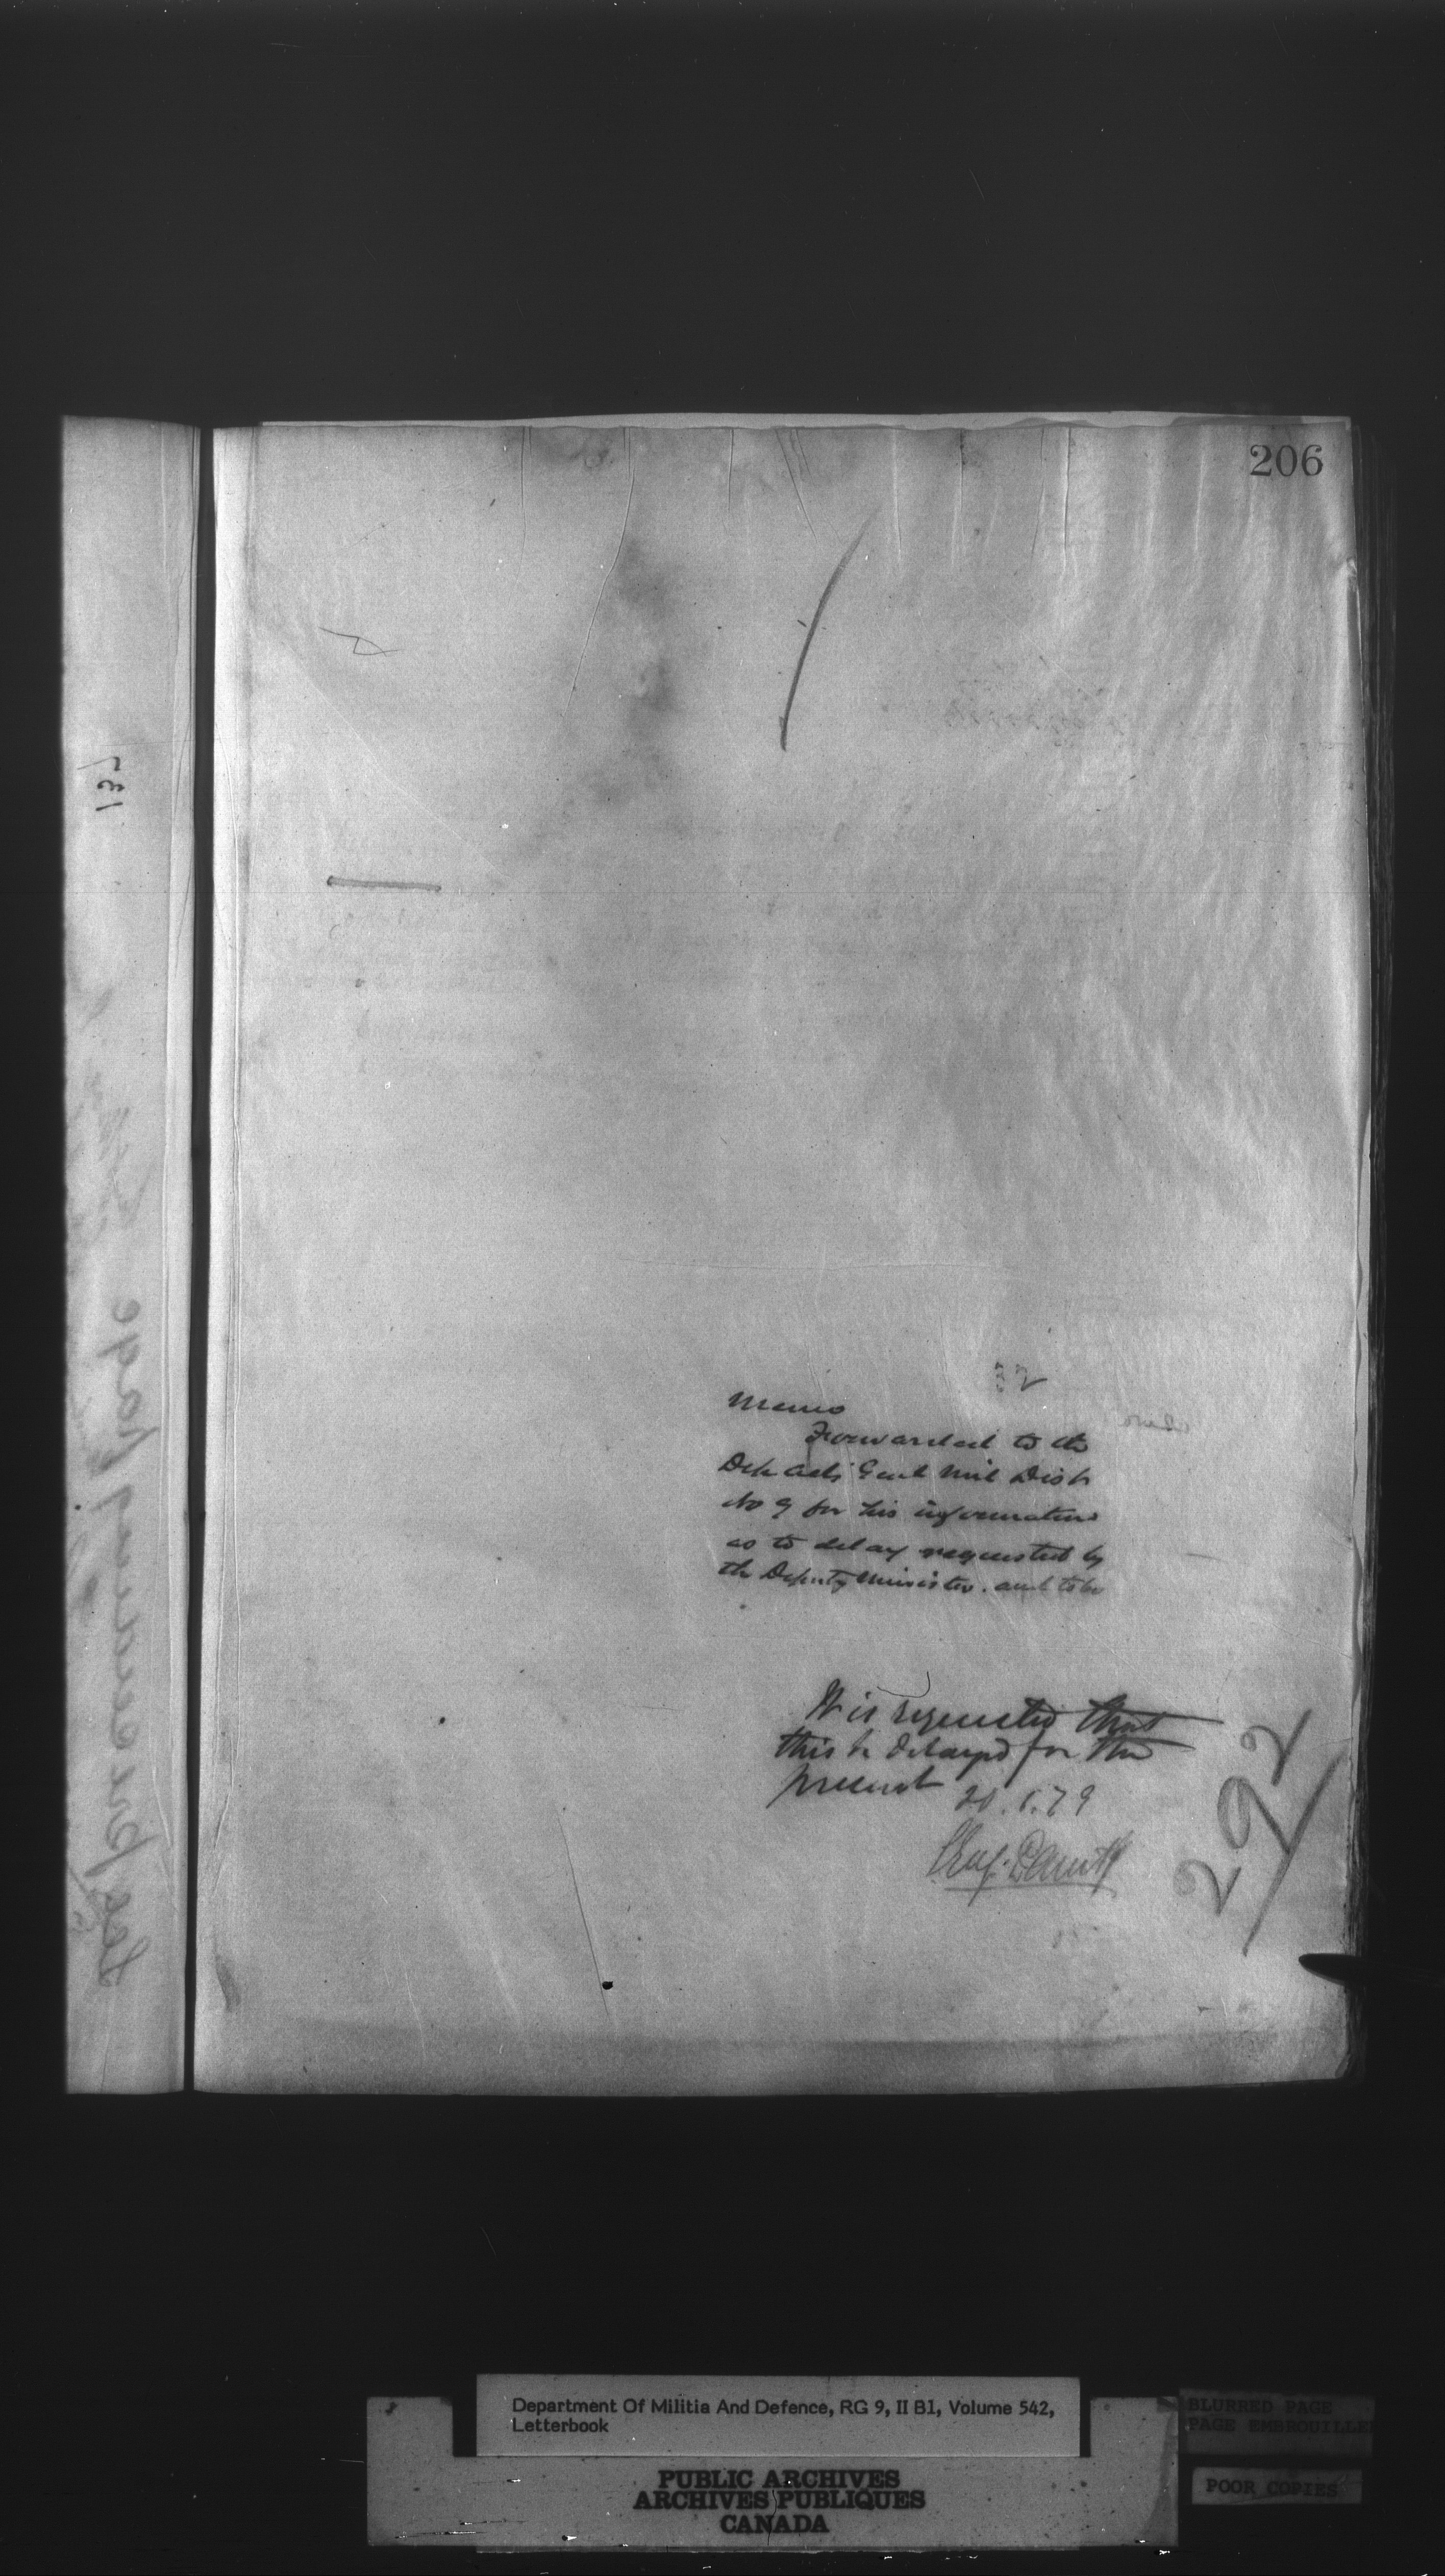 206
137
See preceding page
Memo
Forwarded to the
Dep Adj Genl Mil Dist
No 9 for his information
as to delay requested by
the Deputy Minister. and to be
It is requested that
this be delayed for the
present
20.1.79
292
Department Of Militia And Defence, RG 9, II B1, Volume 542,
Letterbook
PUBLIC ARCHIVES
ARCHIVES PUBLIQUES
CANADA
BLURRED PAGE
PAGE EMBROUILLEE
POOR COPIES